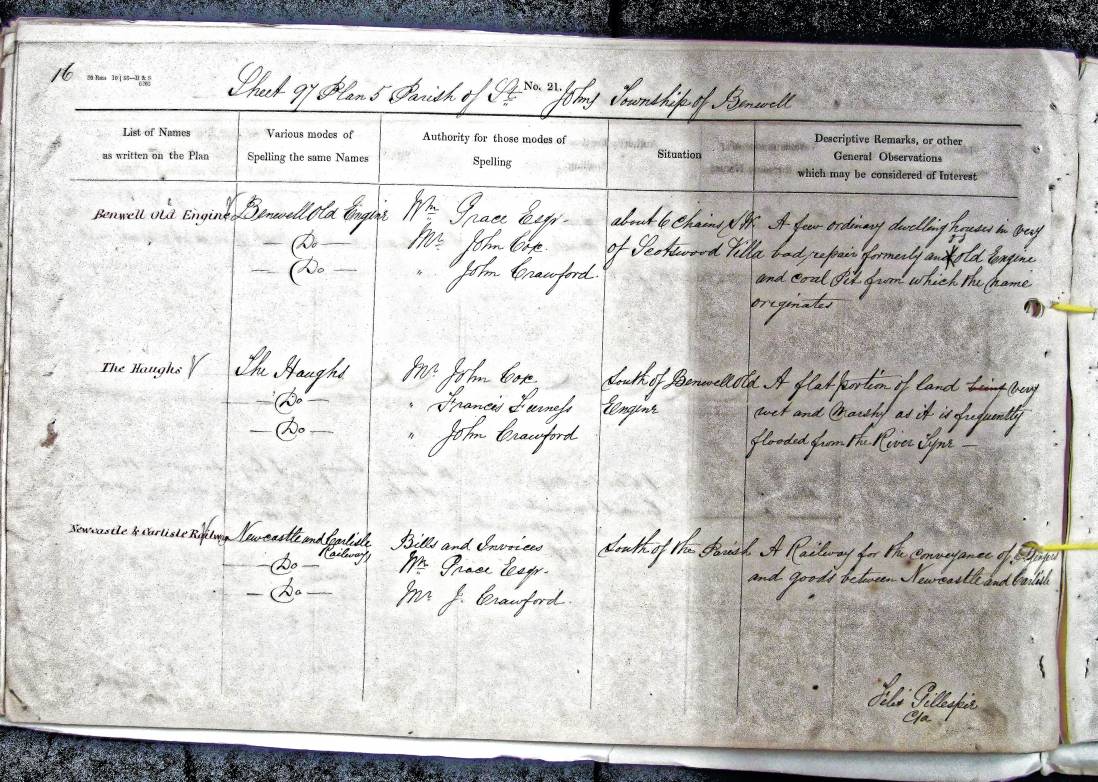 16
No. 21.
Sheet 97 Plan 5 Parish of St Johns Township of Benwell
List of Names
as written on the Plan
Various modes of
Spelling the same Names
Authority for those modes of
Spelling
Situation
Descriptive Remarks, or other
General Observations
which may be considered of Interest
Benwell Old Engine
Benwell Old Engine
— Do —
— Do —
Wm Grace Esqr.
Mr John Cox
" John Crawford.
about 6 Chains S.W.
of Scotswood Villa
A few ordinary dwelling houses in very
bad repair formerly an old Engine
and coal Pit from which the name
originates
The Haughs
The Haughs
— Do —
— Do —
Mr John Cox
" Francis Furness
" John Crawford
South of Benwell Old
Engine
A flat portion of land being very
wet and Marshy as it is frequently
flooded from the River Tyne —
Newcastle & Carlisle Railway
Newcastle and Carlisle
Railway
— Do —
— Do —
Bills and Invoices
Wm Grace Esqr.
Mr J. Crawford.
South of the Parish
A Railway for the conveyance of
and goods between Newcastle and Carlisle
Felix Gillespie
C/a